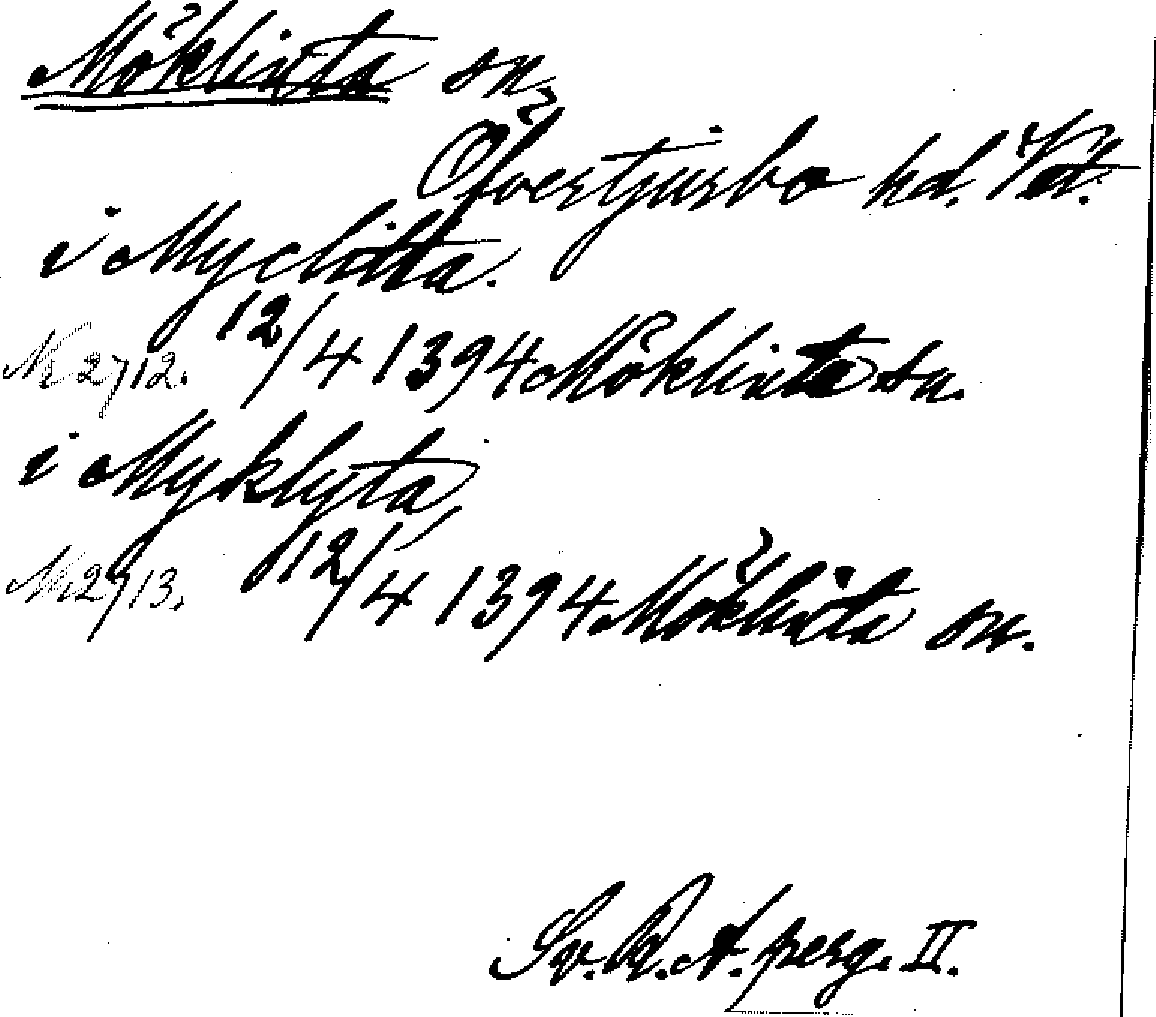 Möklinta sn,
Öfvertjurbo hd. Vstm.
i Myclitta.
Nr 2712. 12/4 1394 Möklinta sn.
i Myklyta,
Nr 2713. 12/4 1394 Möklinta sn.
Sv. R. A. perg. II.